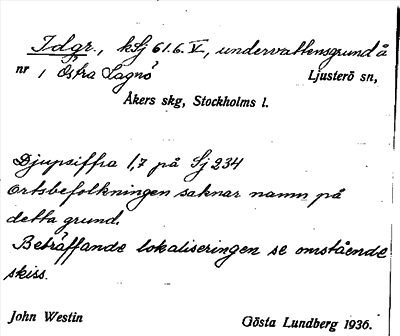 Idgr., kSj 61.6. V, undervattensgrund å
nr 1 Östra Lagnö Ljusterö sn,
Åkers skg, Stockholms l.
Djupsiffra 1,7 på Sj 234
Ortsbefolkningen saknar namn på
detta grund.
Beträffande lokaliseringen se omstående
skiss.
John Westin Gösta Lundberg 1936.